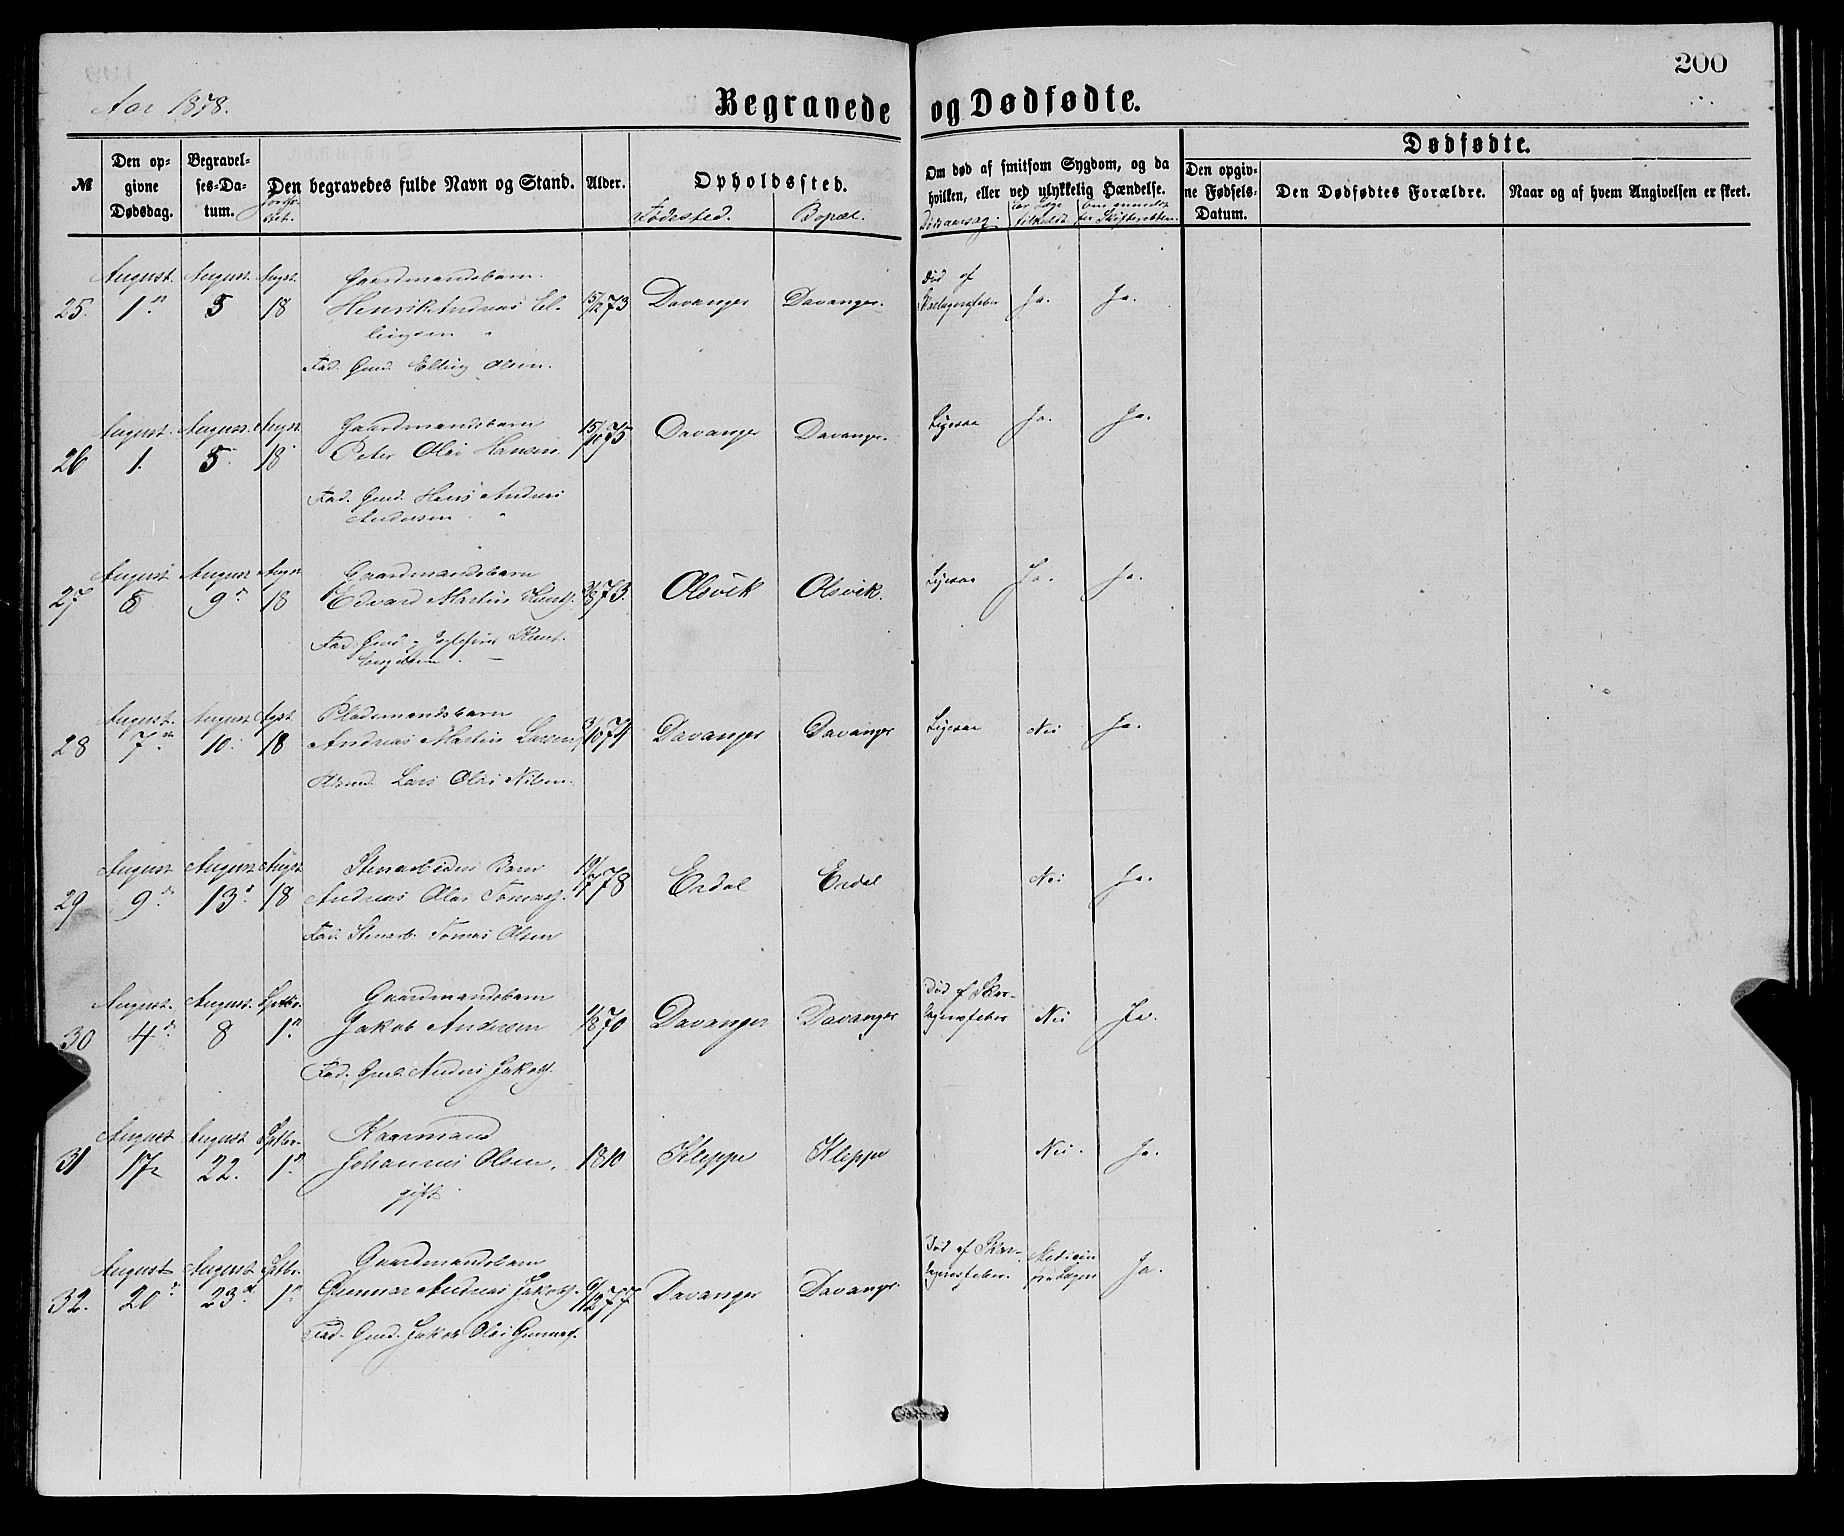 200
Aar 1878.
Begravede og Dødfødte.
№
Den op-
givne
Dødsdag.
Begravel-
ses-Da-
tum.
Den begravedes fulde Navn og Stand.
Alder.
Opholdssted.
Fødested.
Bopæl.
Om død af smitsom Sygdom, og da
hvilken, eller ved ulykkelig Hændelse.
Dødsaarsag.
Dødfødte.
Den opgiv-
ne Fødsels-
Datum.
Den Dødfødtes Forældre.
Naar og af hvem Angivelsen er skeet.
August. August. Augst. Gaardmandsbarn. Død af
25. 1 5 18 Henrik Andreas El- 15/12 73 Davanger Davanger. Skarlagensfeber Ja. Ja.
lingsen
Fad. Gmd. Elling Olsen.
August. August. Augst. Gaardmandsbarn
26 1. 5 18 Peter Olai Hansen 15/10 75 Davanger Davanger. Ligesaa Ja. Ja.
Fad. Gmd. Hans Andreas
Andersen
August August Augst Gaardmandsbarn
27 8 9 18 Edvard Martin 73. Olsvik Olsvik. Ligesaa Ja. Ja.
Fad. Gmd.
August. August Augst. Pladsmandsbarn
28 7 10. 18 Andreas Martin Larsen 3/10 74 Davanger Davanger Ligesaa Nei Ja.
Lars Olai Nilsen.
August August Augst. Stenarbeiders Barn
29 9 13 18 Andreas Olai Tomass. 78 Erdal Erdal Nei Ja.
Fad. Stenarb. Tomas Olsen
August. August. Septbr. Gaardmandsbarn Død af Skar-
30 4 8 1 Jakob Andersen 70 Davanger Davanger lagensfeber Nei Ja.
Fad. Gmd. Anders Jakobs.
August August Septbr. Kaarmand
31 17 22. 1 Johannes Olsen, 1810 Kleppe Kleppe Nei. Ja.
gift.
August August Septbr. Gaardmandsbarn Død af Skar- Medicin
32. 20 23 1 Gunnar Andreas Jakobs. 77 Davanger Davanger. lagensfeber. fra Lægen Ja.
Fad. Gmd. Jakob Olai Gunnars.